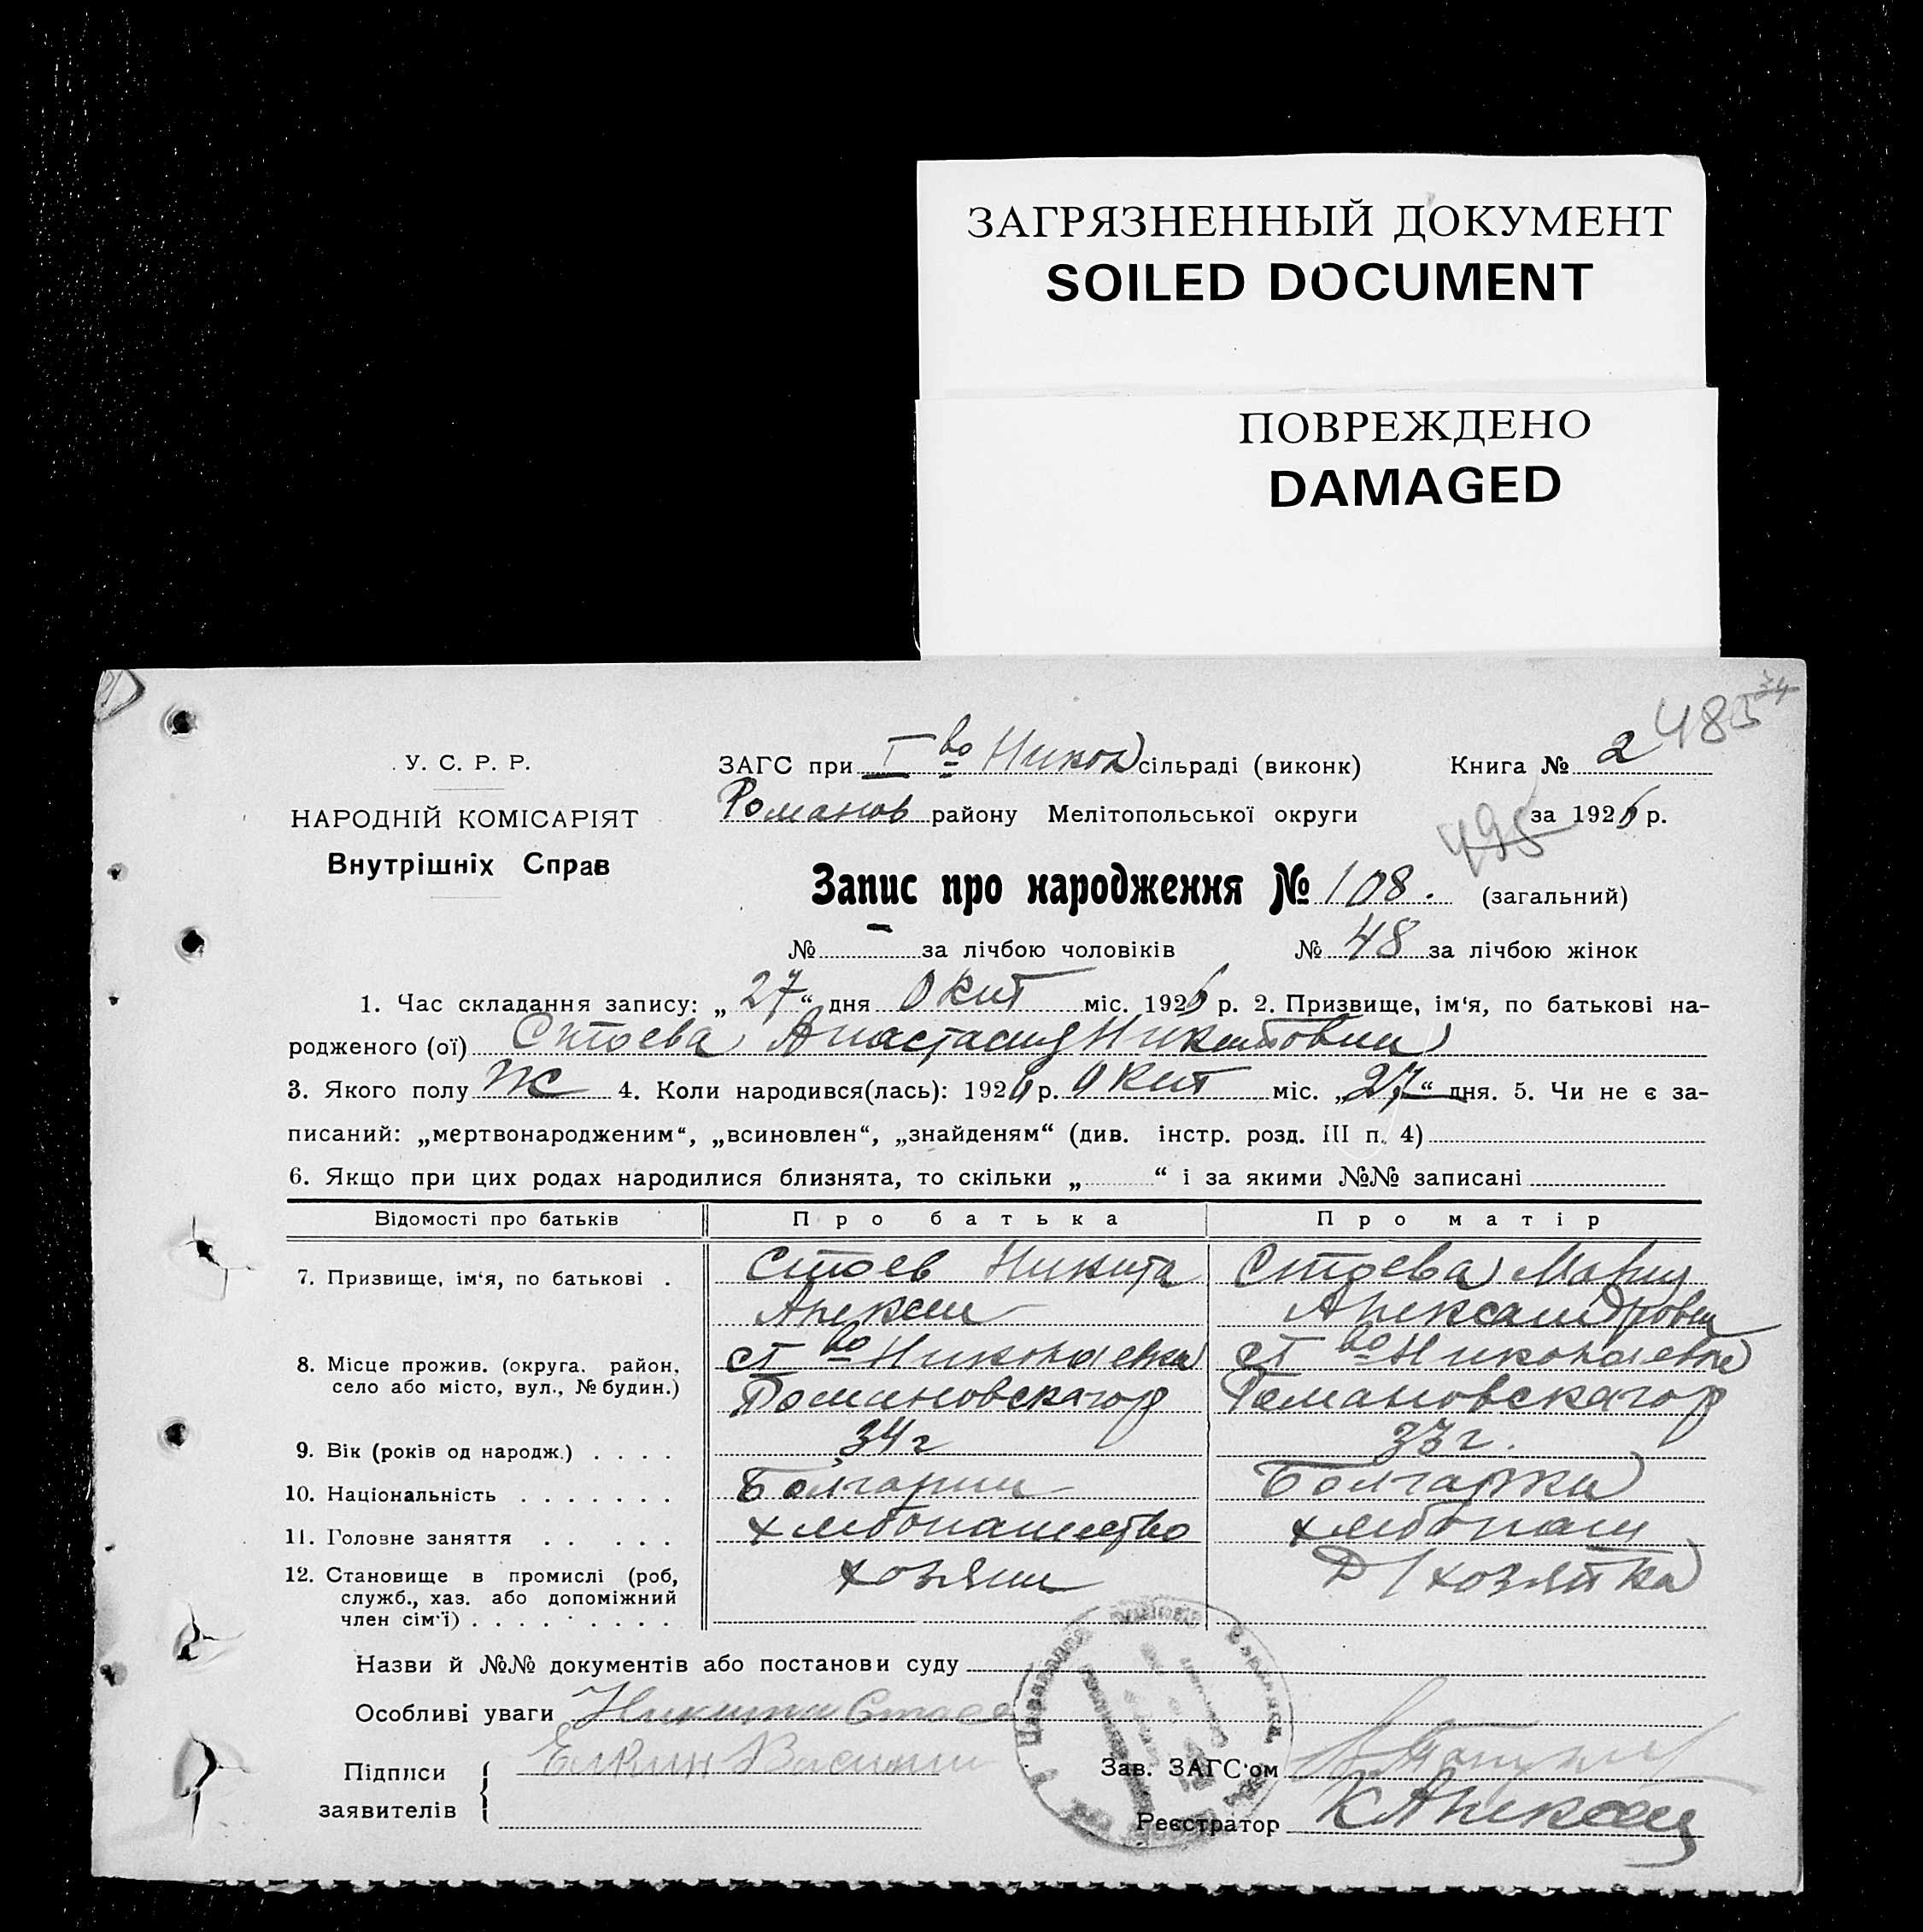 ЗАГРЯЗНЕННЫЙ ДОКУМЕНТ
SOILED DOCUMENT
ПОВРЕЖДЕНО
DAMAGED
485 34
У. С. Р. Р.
НАРОДНІЙ КОМІСАРІЯТ
Внутрішніх Справ
ЗАГС при I во Никол сільраді (виконк) Книга № 2
Романов району Мелітопольської округи за 1926 р.
495
Запис про народження № 108. (загальний)
№ – за лічбою чоловіків № 48 за лічбою жінок
1. Час складання запису: „27“ дня Окт міс. 1926 р. 2. Призвище, ім‘я, по батькові на-
родженого (ої) Стоева Анастасия Никитовна
3. Якого полу ж 4. Коли народився(лась): 1926 р. Окт міс. „27“ дня. 5. Чи не є за-
писаний: „мертвонародженим“, „всиновлен“, „знайденям“ (див. інстр. розд. III п. 4)
6. Якщо при цих родах народилися близнята, то скільки „ “ і за якими №№ записані
Відомості про батьків Про батька Про матір
7. Призвище, ім‘я, по батькові . Стоев Никита Стоева Мария
Алексан Александровн
8. Місце прожив. (округа, район, во Николаевка во Николаевка
село або місто, вул., № будин.) Романовскаго р Романовскаго р
9. Вік (років од народж.) . . . . 34 г 33 г.
10. Національність . . . . . . . Болгарин Болгарка
11. Головне заняття . . . . . хлебопашество хлебопаш
12. Становище в промислі (роб, хозяин Д/хозяйка
служб., хаз. або допоміжний
член сім‘ї) . . . . . . . . .
Назви й №№ документів або постанови суду
Особливі уваги Никита Стоев
Підписи
заявителів
Елкин Василий
Зав. ЗАГС‘ом
Реєстратор